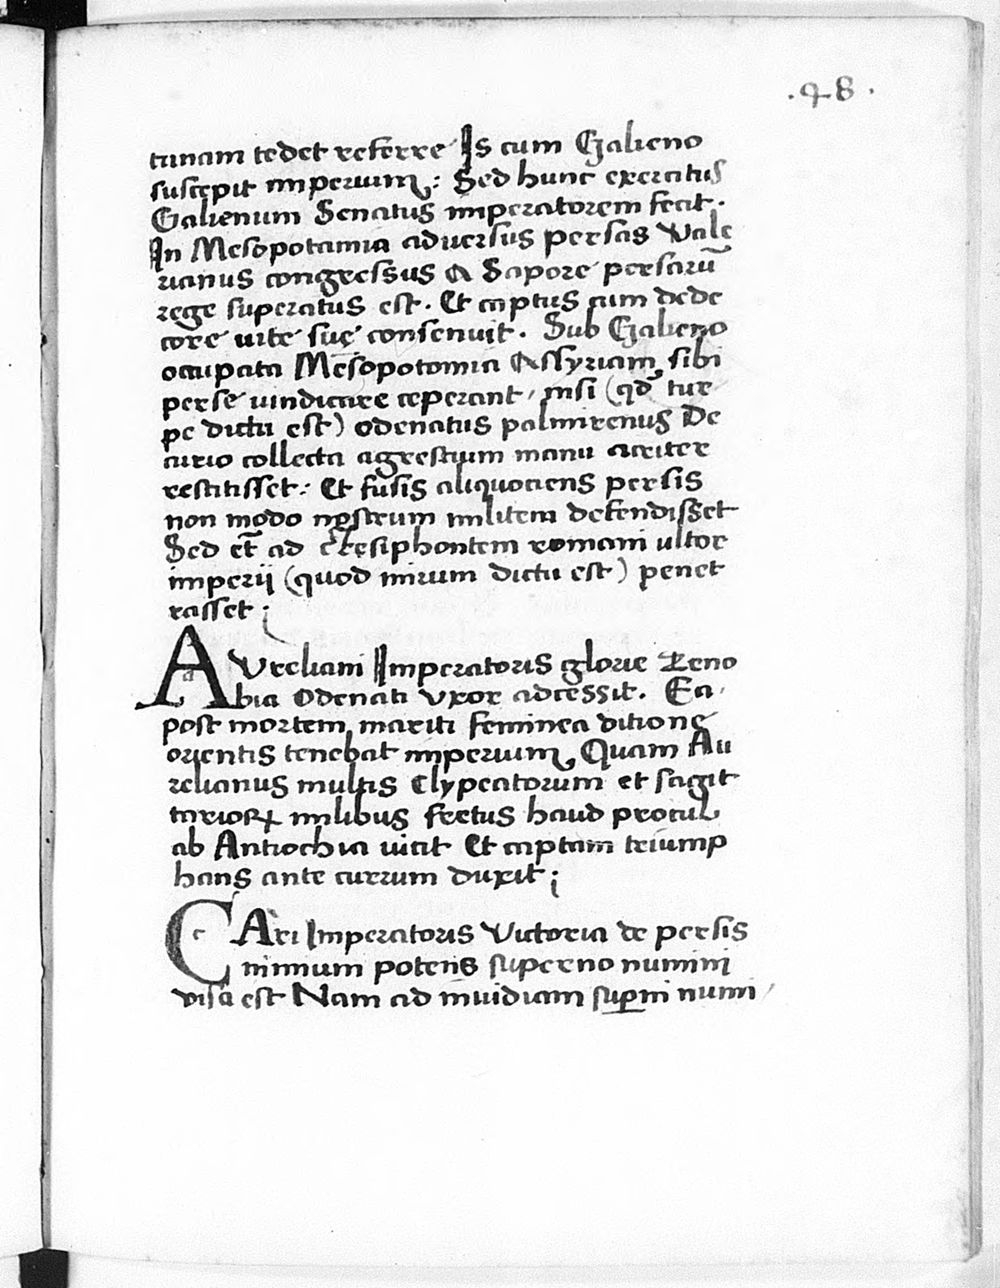 .48.
tunam tedet referre Is cum Galieno
suscepit imperium: Sed hunc exercitus
Galienum Senatus imperatorem fecit.
In Mesopotamia adversus persas Vale
rianus congressus A Sapore persarū
rege superatus est. Et captus cum dede
core vite sue consenuit. Sub Galieno
occupata Mesopotomia Assyriam sibi
perse vindicare ceperant, nisi (qd tur
pe dictu est) odenatus palmirenus De
curio collecta agrestium manu acriter
restitisset: Et fusis aliquociens persis
non modo nostrum militem defendisset
Sed et̄ ad ctesiphontem romani ultor
imperij (quod mirum dictu est) penet
rasset;
AVreliani Imperatoris glorie Zeno
bia Odenati Vxor adcessit. Ea
post mortem mariti feminea ditione
orientis tenebat imperium, Quam Au
relianus multis Clypeatorum et sagit
tarioꝝ milibus fretus haud procul
ab Antiochia vicit Et captam triump
hans ante currum duxit;
CAri Imperatoris Victoria de persis
nimium potens superno numini
visa est Nam ad invidiam superni numi